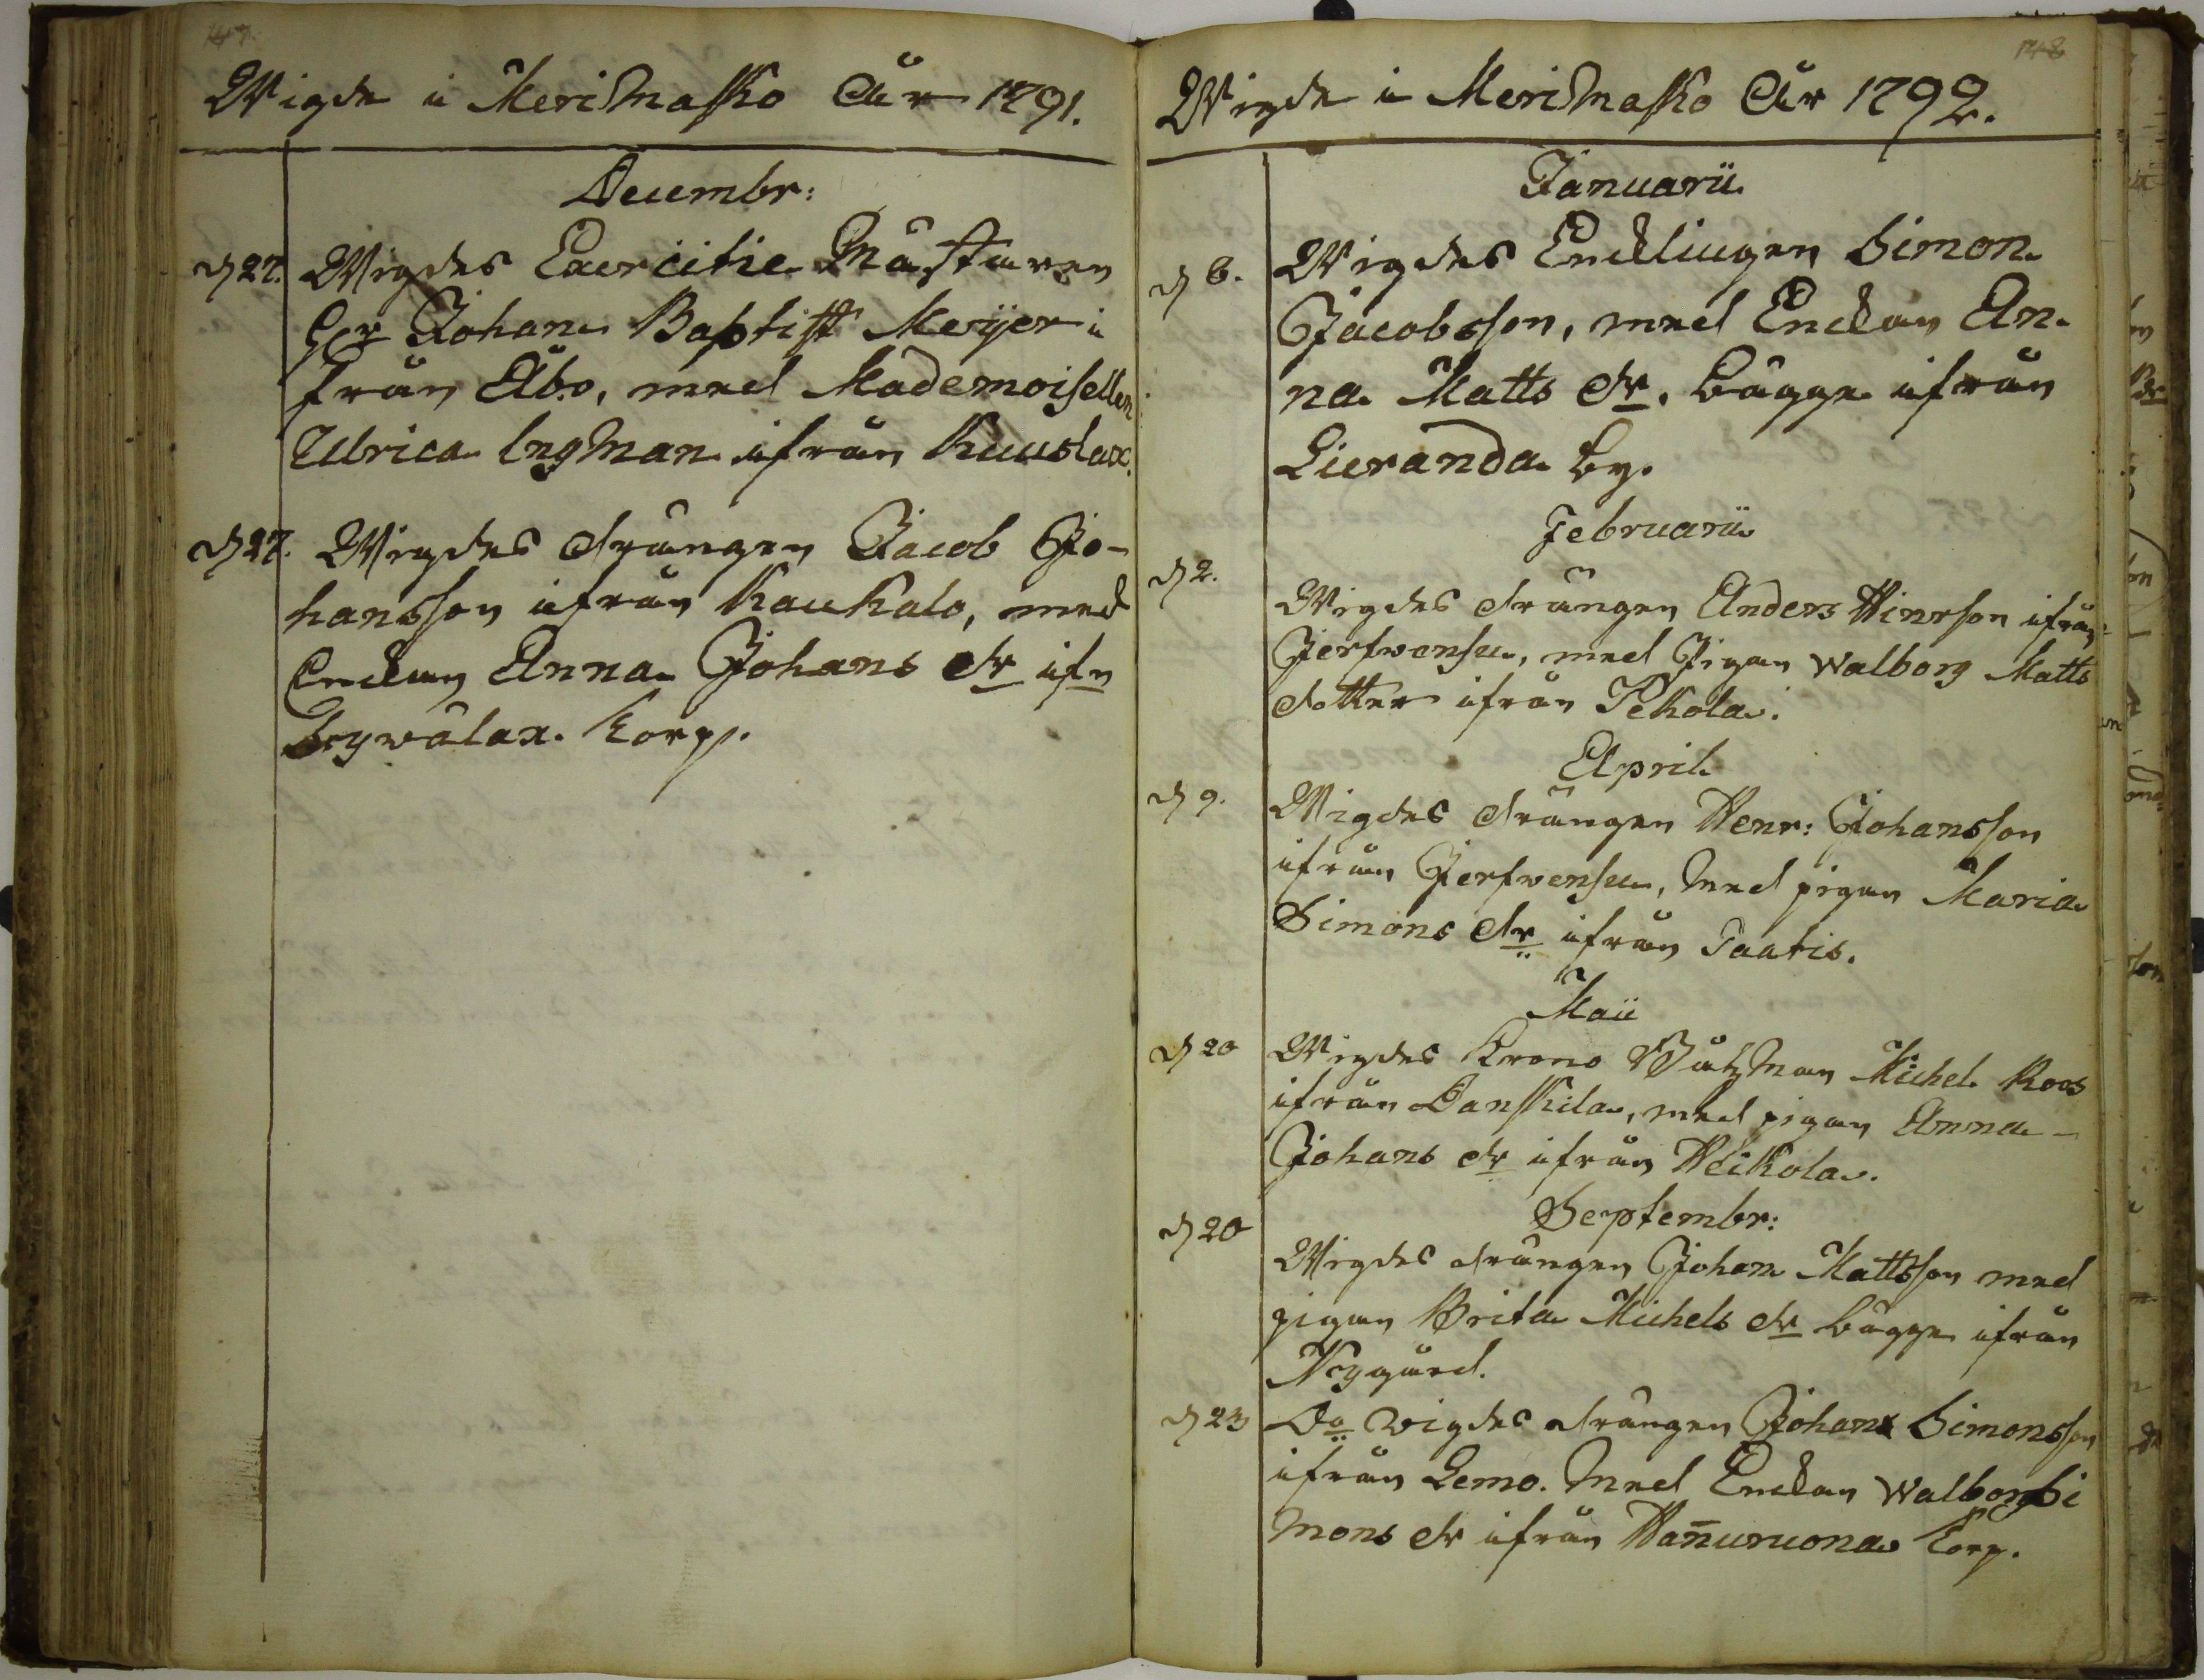 147.
Wigde i Merimasko År 1791.
Decembr:
d 27. Wigdes Exercitie Mästaren
Her Johan Baptist Meijer i
från Åbo, med Mademoisellen
Ulrica Ingman ifrån Kuuslax.
d 27. Wigdes drängen Jacob Jo-
hansson ifrån Kaukalo, med
Enckan Anna Johans dr ifn
Tywälax. Torp.
148
Wigde i Merimasko År 1792.
Januarii
d 6. Wigdes Encklingen Simon
Jacobsson, med Enckan An-
na Matts dr. bägge ifrån
Lieranda by.
Februarii
d 2.
Wigdes drängen Anders Hinrson ifrån
Jerfwensu, med Pigan Walborg Matts
dotter ifrån Pekola.
April
d 9. Wigdes drängen Henr: Johansson
ifrån Jerfwensu, med pigan Maria
Simons dr ifrån Taatis.
Maii
d 20 Wigdes Krono Båtzman Michel Roos
ifrån Danskila, med pigan Anna
Johans dr ifrån Heikola.
Septembr:
d 20
Wigdes drängen Johan Mattsson med
pigan Brita Michels dr bägge ifrån
Nygård.
d 23 Do wigdes drängen Johan Simonsson
ifrån Lemo. Med Enckan Walborg Si
mons dr ifrån Wañuruona Torp.